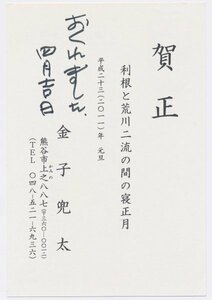 賀正
利根と荒川二流の間の寝正月
平成二十三(二〇一一)年 元旦
金子兜太
熊谷市上之八八七(〒三六〇-〇〇一二)
かみの
(TEL 〇四八-五二一-六九三六)
おくれました、
四月吉日